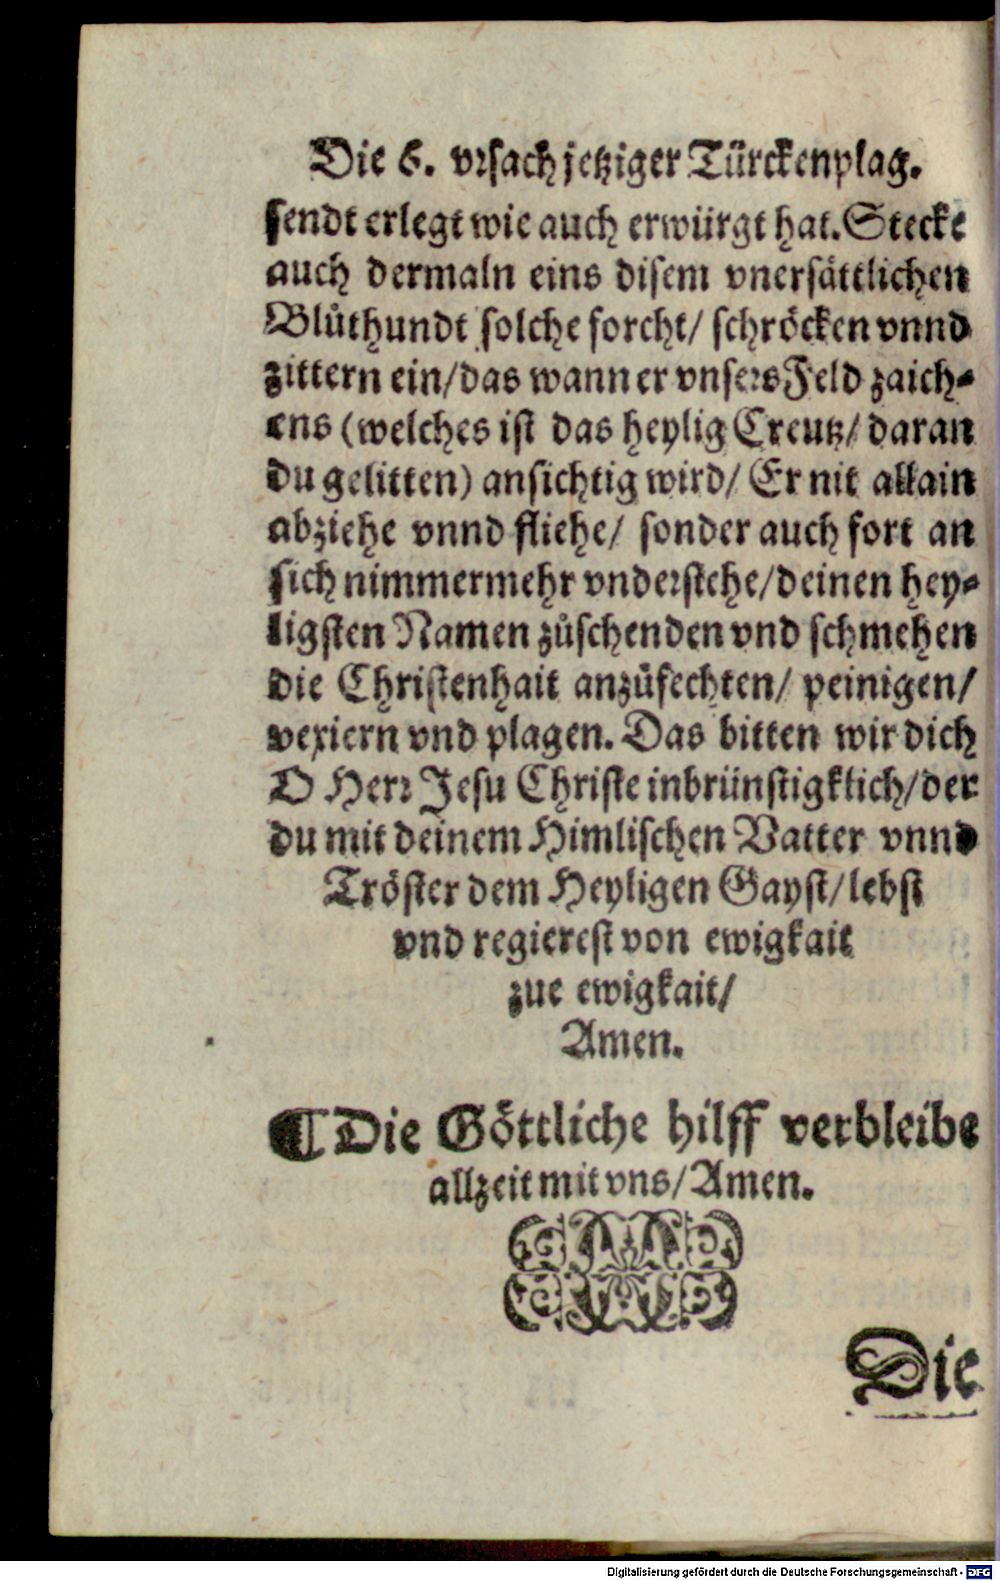 Die 6. vrsach jetziger Türckenplag.
sendt erlegt wie auch erwürgt hat. Stecke
auch dermaln eins disem vnersättlichen
Blůthundt solche forcht/ schröcken vnnd
zittern ein/ das wann er vnsers Feld zaich-
ens (welches ist das heylig Creutz/ daran
du gelitten) ansichtig wird/ Er nit allain
abziehe vnnd fliehe/ sonder auch fort an
sich nimmermehr vnderstehe/ deinen hey-
ligsten Namen zůschenden vnd schmehen
die Christenhait anzůfechten/ peinigen/
vexiern vnd plagen. Das bitten wir dich
O Herr Jesu Christe inbrünstigklich/ der
du mit deinem Himlischen Vatter vnnd
Tröster dem Heyligen Gayst/ lebst
vnd regierest von ewigkait
zue ewigkait/
Amen.
¶ Die Göttliche hilff verbleibe
allzeit mit vns/ Amen.
Die
Digitalisierung gefördert durch die Deutsche Forschungsgemeinschaft - DFG